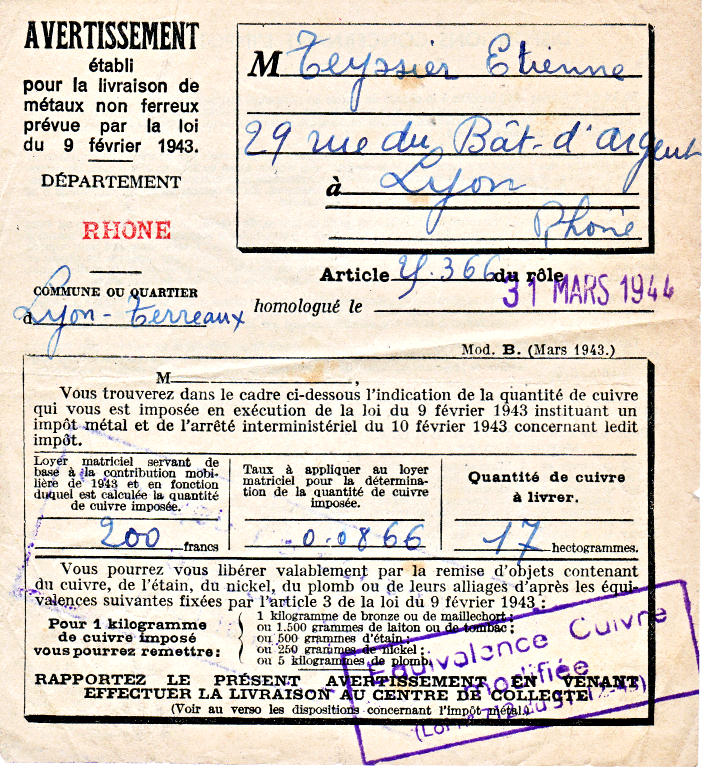 AVERTISSEMENT
établi
pour la livraison de
métaux non ferreux
prévue par la loi
du 9 février 1943.
DÉPARTEMENT
RHONE
COMMUNE OU QUARTIER
d Lyon-Terreaux
M Teyssier Etienne
29 rue du Bât-d'argent
à Lyon
Rhône
Article 366 du rôle
homologué le 31 MARS 1944
Mod. B. (Mars 1943.)
M ,
Vous trouverez dans le cadre ci-dessous l'indication de la quantité de cuivre
qui vous est imposée en exécution de la loi du 9 février 1943 instituant un
impôt métal et de l'arrêté interministériel du 10 février 1943 concernant ledit
impôt.
Loyer matriciel servant de
base à la contribution mobi-
lière de 1943 et en fonction
duquel est calculée la quantité
de cuivre imposée.
200 francs
Taux à appliquer au loyer
matriciel pour la détermina-
tion de la quantité de cuivre
imposée.
0.0866
Quantité de cuivre
à livrer.
17 hectogrammes.
Vous pourrez vous libérer valablement par la remise d'objets contenant
du cuivre, de l'étain, du nickel, du plomb ou de leurs alliages d'après les équi-
valences suivantes fixées par l'article 3 de la loi du 9 février 1943 :
Pour 1 kilogramme
de cuivre imposé
vous pourrez remettre :
1 kilogramme de bronze ou de maillechort ;
ou 1.500 grammes de laiton ou de tombac ;
ou 500 grammes d'étain ;
ou 250 grammes de nickel ;
ou 5 kilogrammes de plomb.
RAPPORTEZ LE PRÉSENT AVERTISSEMENT EN VENANT
EFFECTUER LA LIVRAISON AU CENTRE DE COLLECTE
(Voir au verso les dispositions concernant l'impôt métal.)
Equivalence Cuivre
modifiée
(Loi n° 712 du 31-12-43)